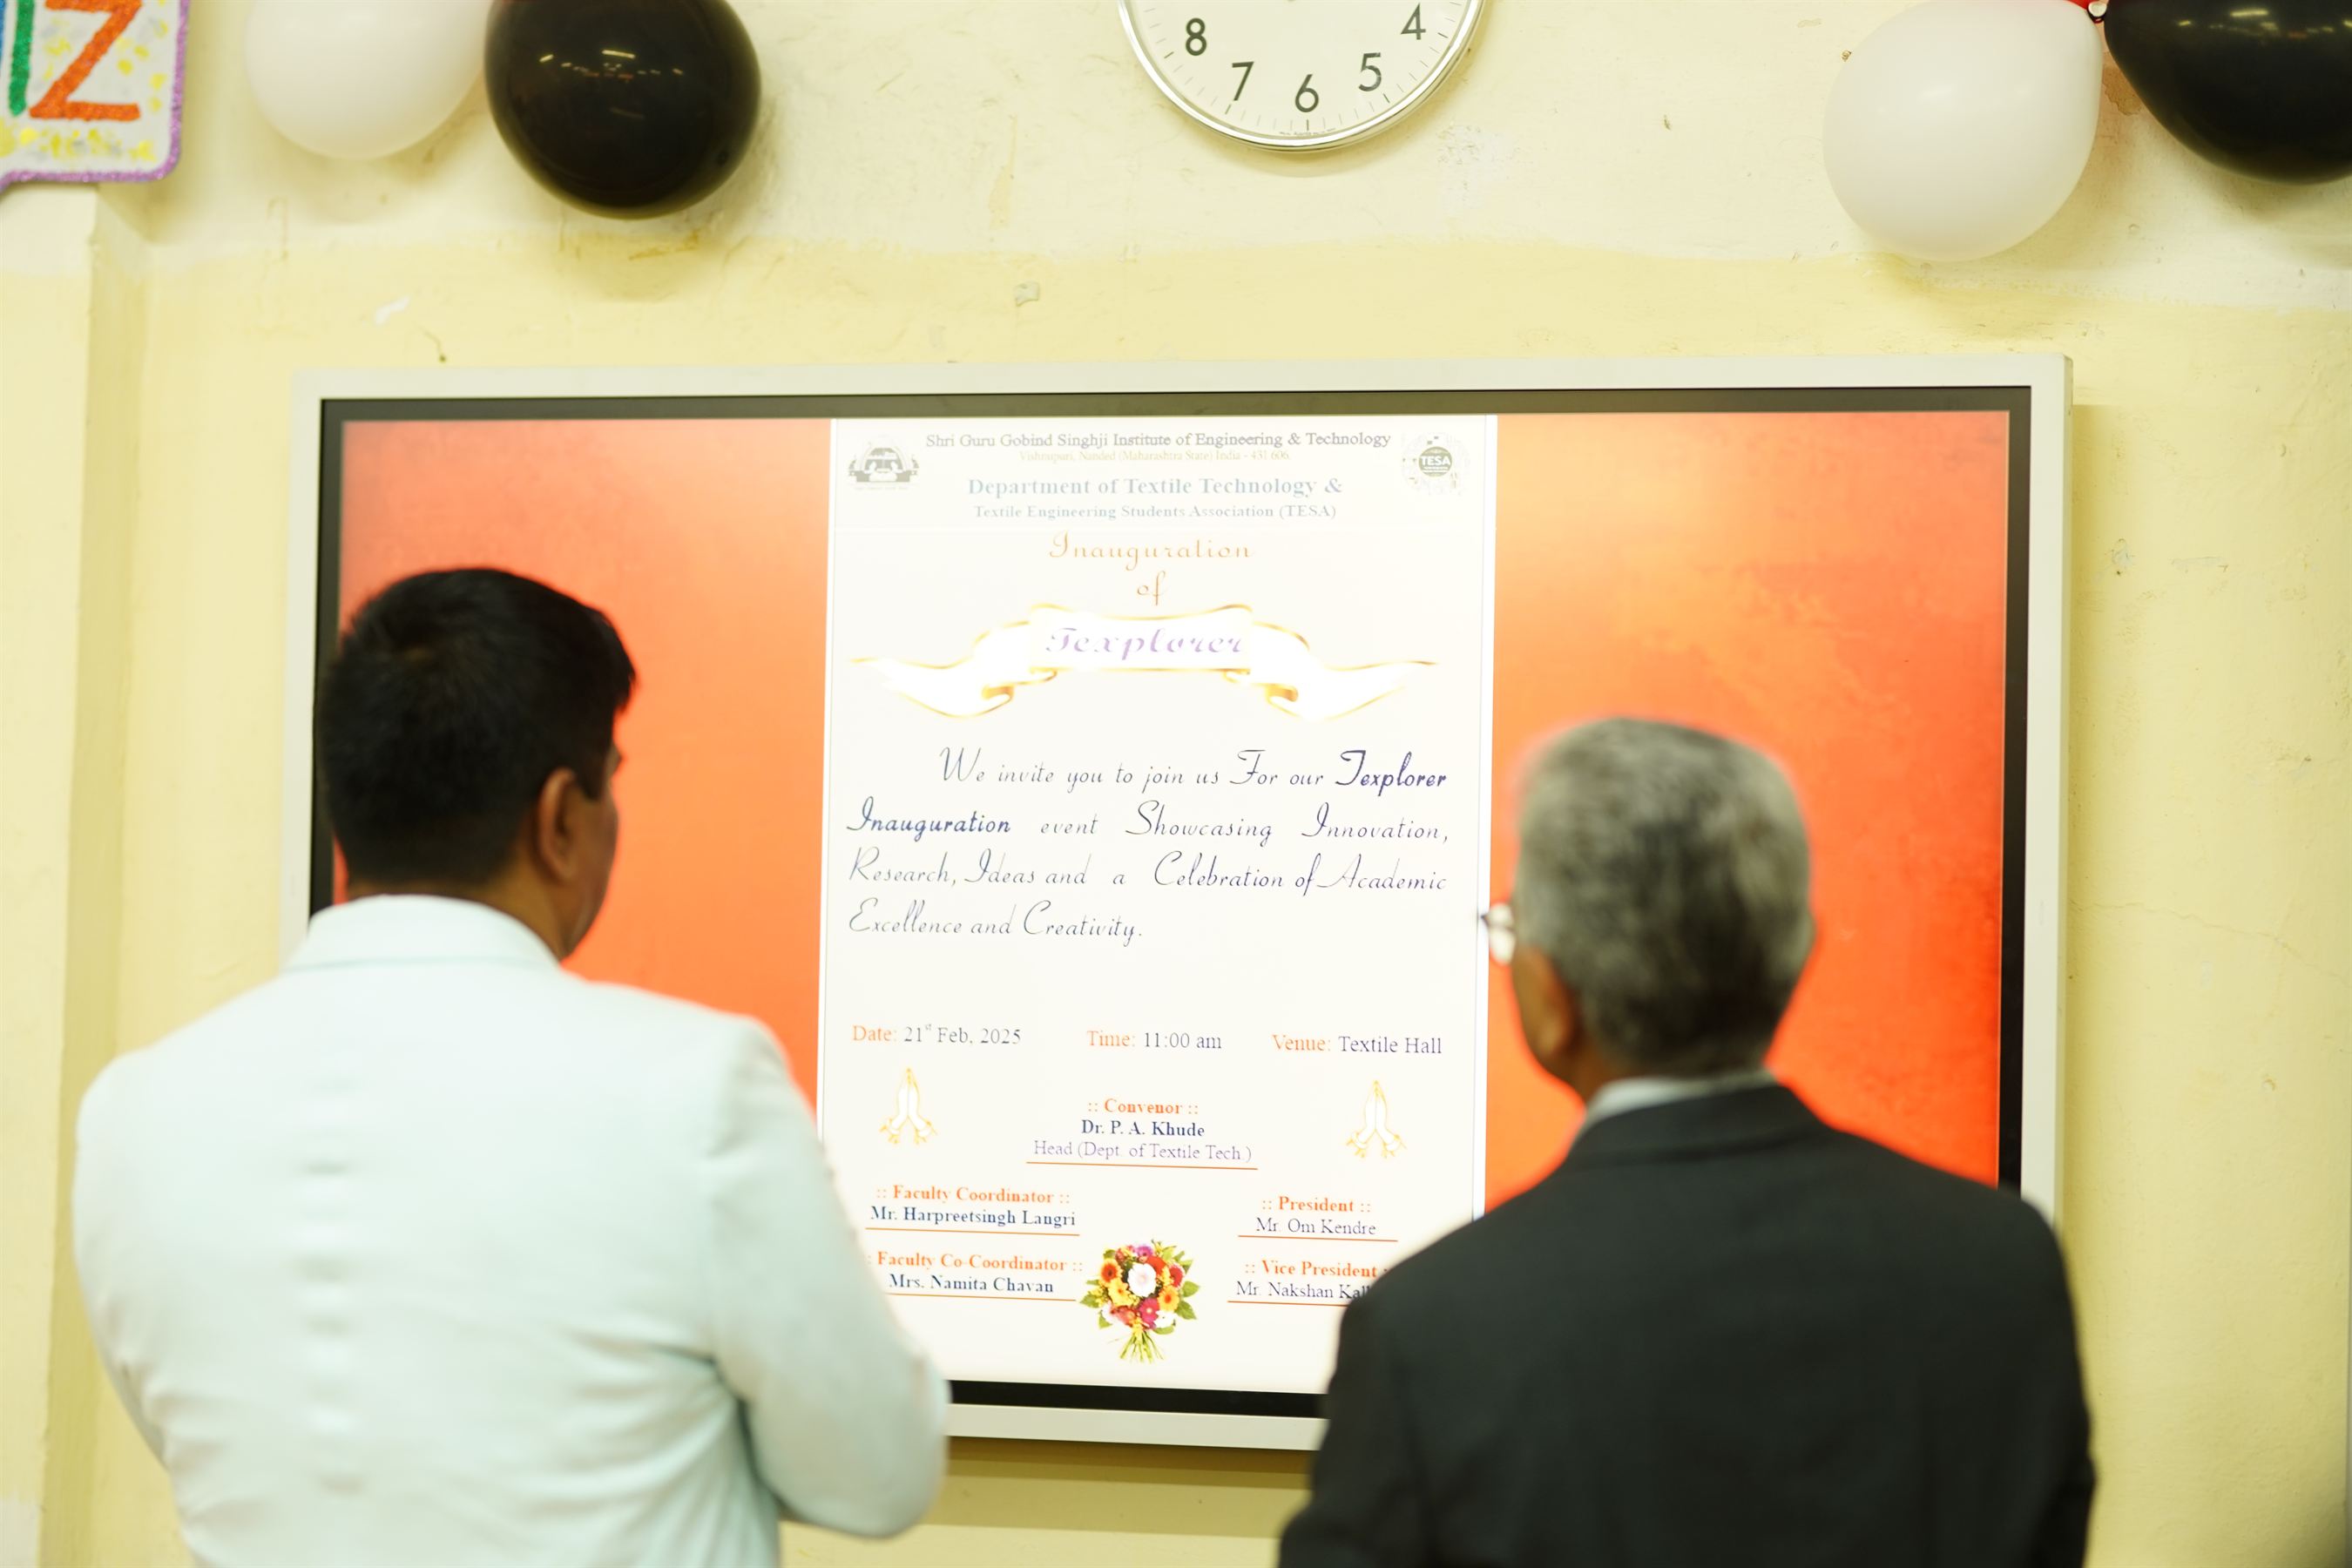 Z
8
7
6
5
4
Shri Guru Gobind Singhji Institute of Engineering & Technology
Vishnupuri, Nanded (Maharashtra State) India - 431 606.
TESA
Department of Textile Technology &
Textile Engineering Students Association (TESA)
Inauguration
of
Texplorer
We invite you to join us For our Texplorer
Inauguration event Showcasing Innovation,
Research, Ideas and a Celebration of Academic
Excellence and Creativity.
Date: 21st Feb, 2025 Time: 11:00 am Venue: Textile Hall
:: Convenor ::
Dr. P. A. Khude
Head (Dept. of Textile Tech.)
:: Faculty Coordinator ::
Mr. Harpreetsingh Langri
:: President ::
Mr. Om Kendre
: Faculty Co-Coordinator ::
Mrs. Namita Chavan
:: Vice President :
Mr. Nakshan